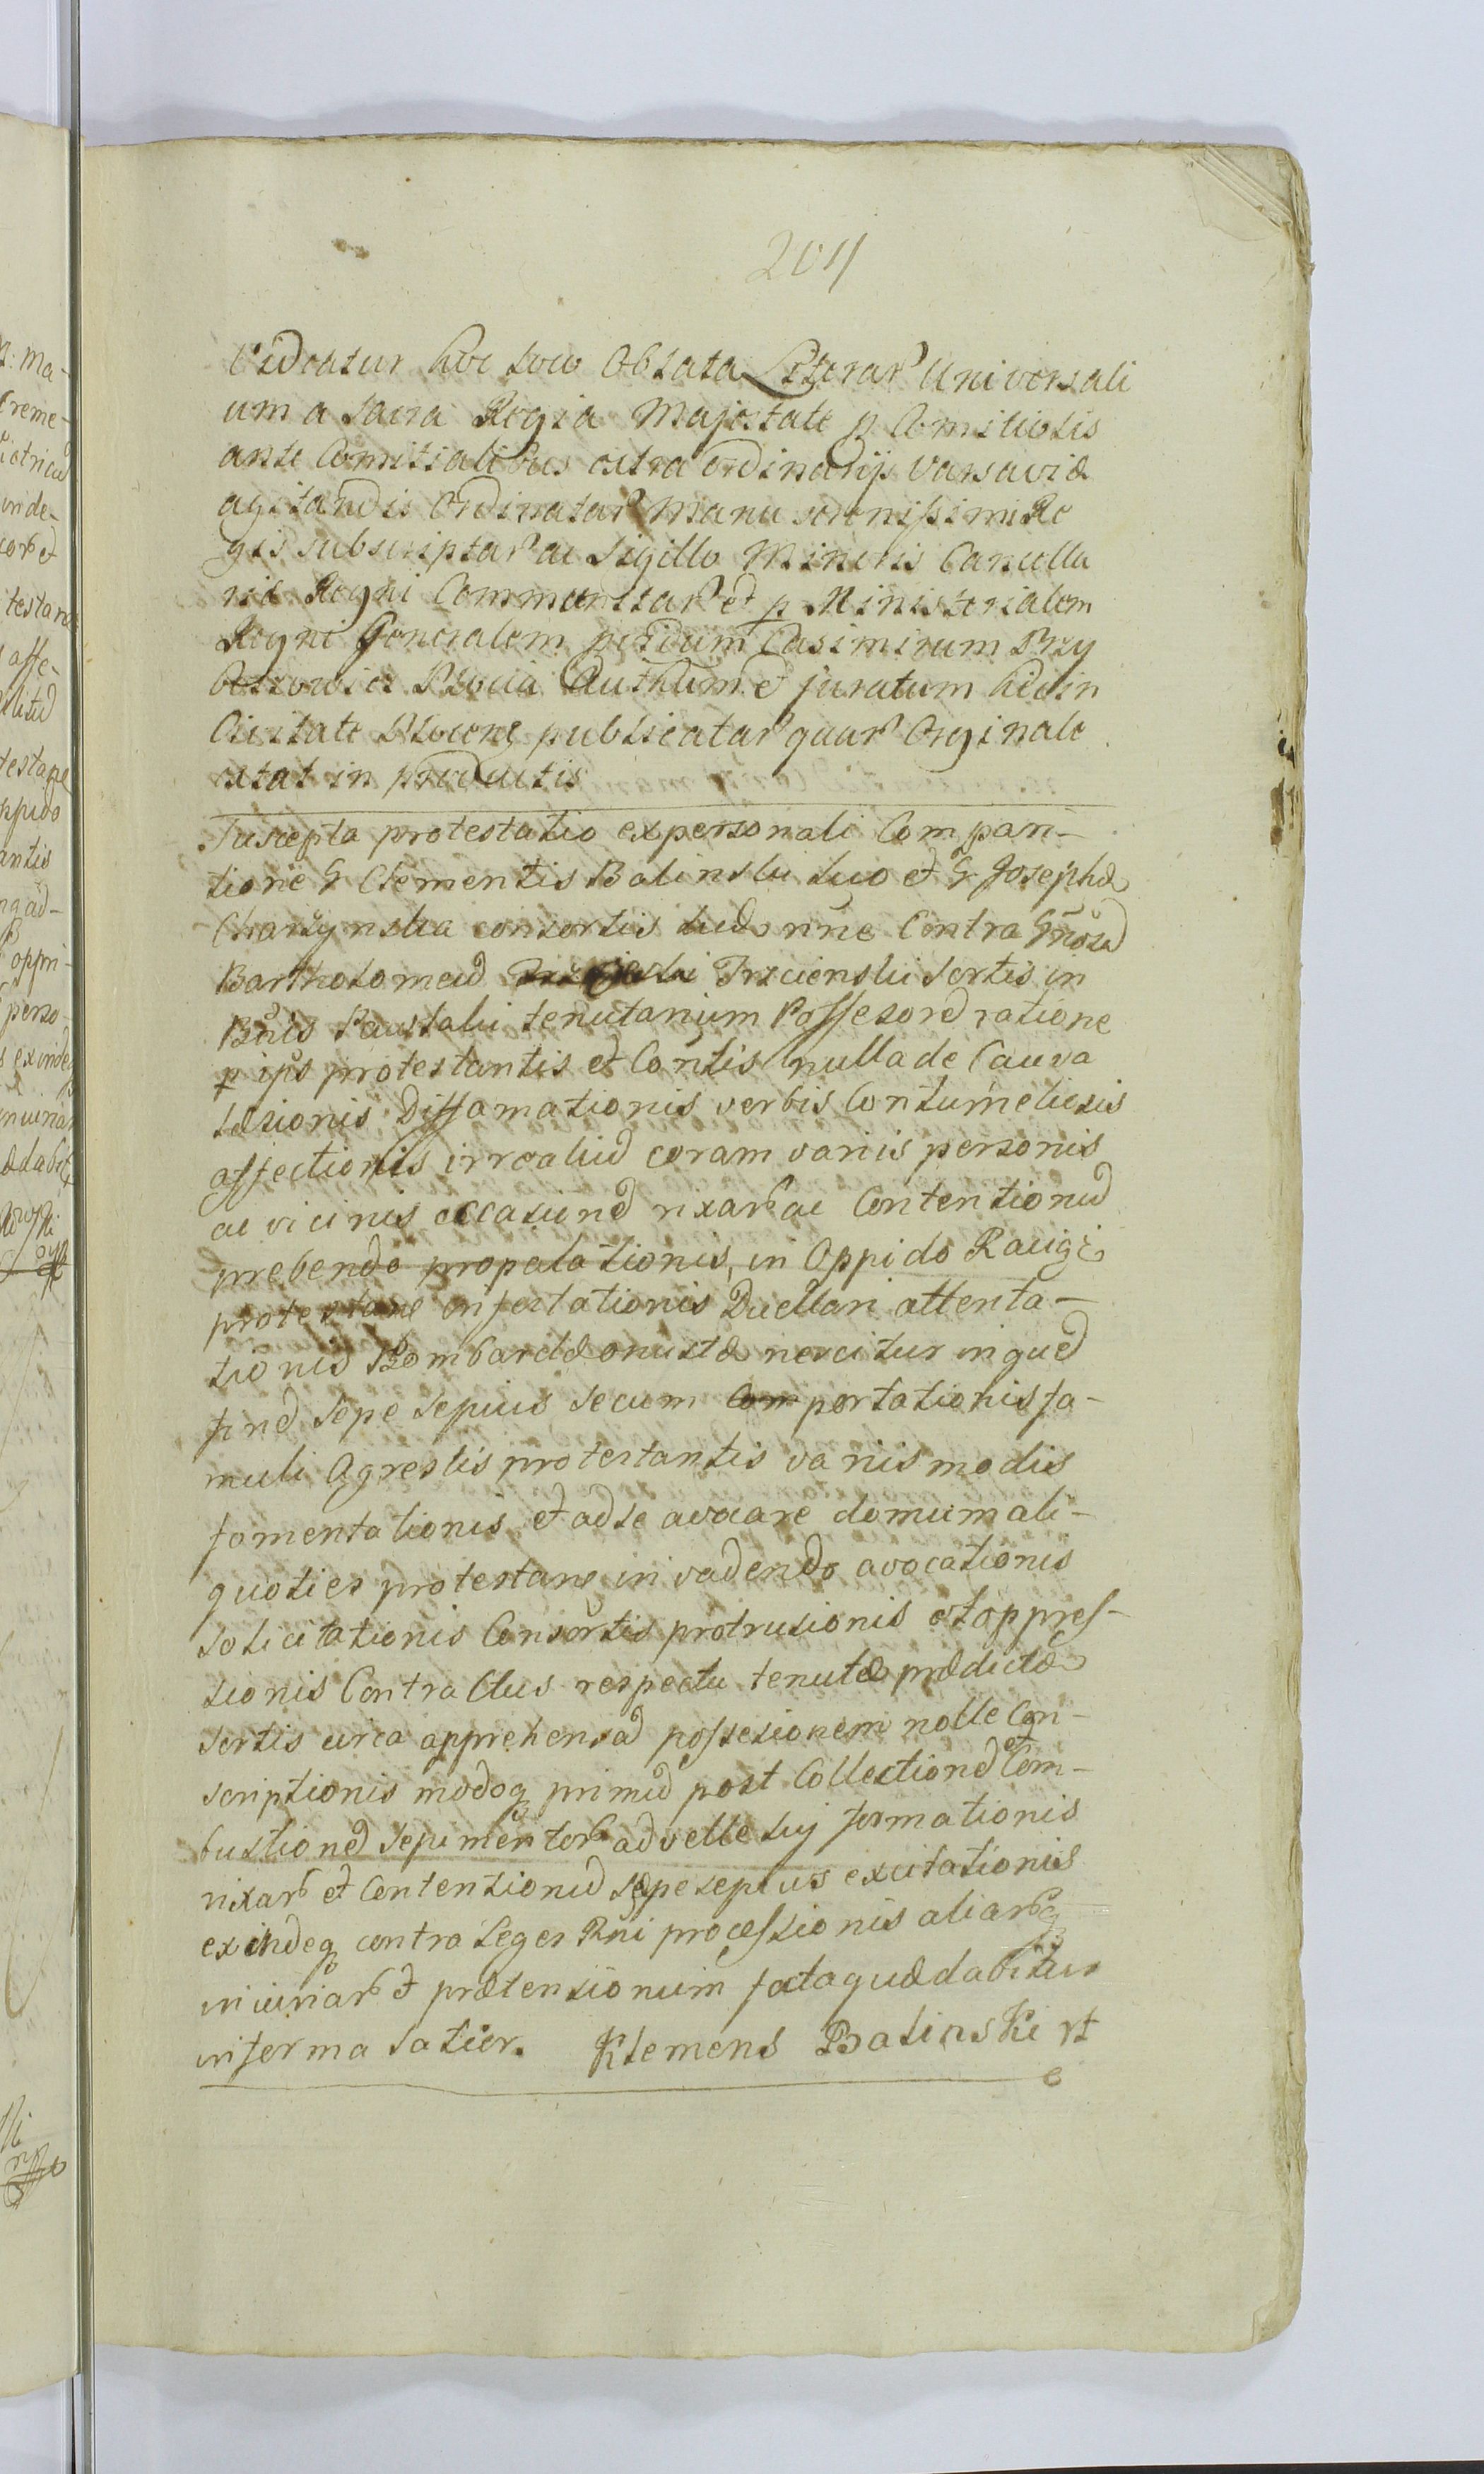 201
Videatur hoc loco Oblata Literar Universali
um a Sacra Regia Majestate p Comitiolis
ante Comitialibus extra ordinarijs Varsaviæ
agitandis Ordinatar Manu serenissimi Re
gis subscriptar ac Sigillo Minoris Cancella
riæ Regni Communitar et p Ministerialem
Regni Generalem pvidum Casimirum Przy
Plocia Authum et juratum hic in
Civitate Plocens publicatar quar Orginale
extat in productis
Suscepta protestatio ex personali Compari-
tione G Clementis Balinski suo et G Josephæ
Charzynska consortis suæ nne Contra Gnosũ
Bartholomeũ Trzcienski Sortis in
Bnis Paustalu tenutarium Possesorẽ ratione
p ips protestantis et Contis nulla de Causa
læsionis Diffamationis verbis Contumeliosis
affectionis irrealiũ coram variis personis
ac vicinis occasionẽ rixar ac Contentionũ
prebendo propalationis, in Oppido Raciąz
protestane infestationis Duellari attenta-
tionis Bombardæ onustæ nescitur in quẽ
finẽ sepe sepius secum Comportationis fa-
muli Agrestis protestantis variis modis
fomentationis et ad se avocare domum ali-
quoties protestans invadendo avocationis
solicitationis Consortis protrusionis et oppres-
sionis Contractus respectu tenutæ prædictæ
Sortis circa apprehensã possesionem nolle Con-
scriptionis modoq primũ post Collectionẽ et Com-
bustionẽ sepimentor ad velle suj formationis
rixar et Contentionũ sæpe sepius excitationis
exindeq contra Leges Rni processionis aliarq
iniuriar et prætensionum fata quæ dabitur
in forma latior. Klemens Balinski